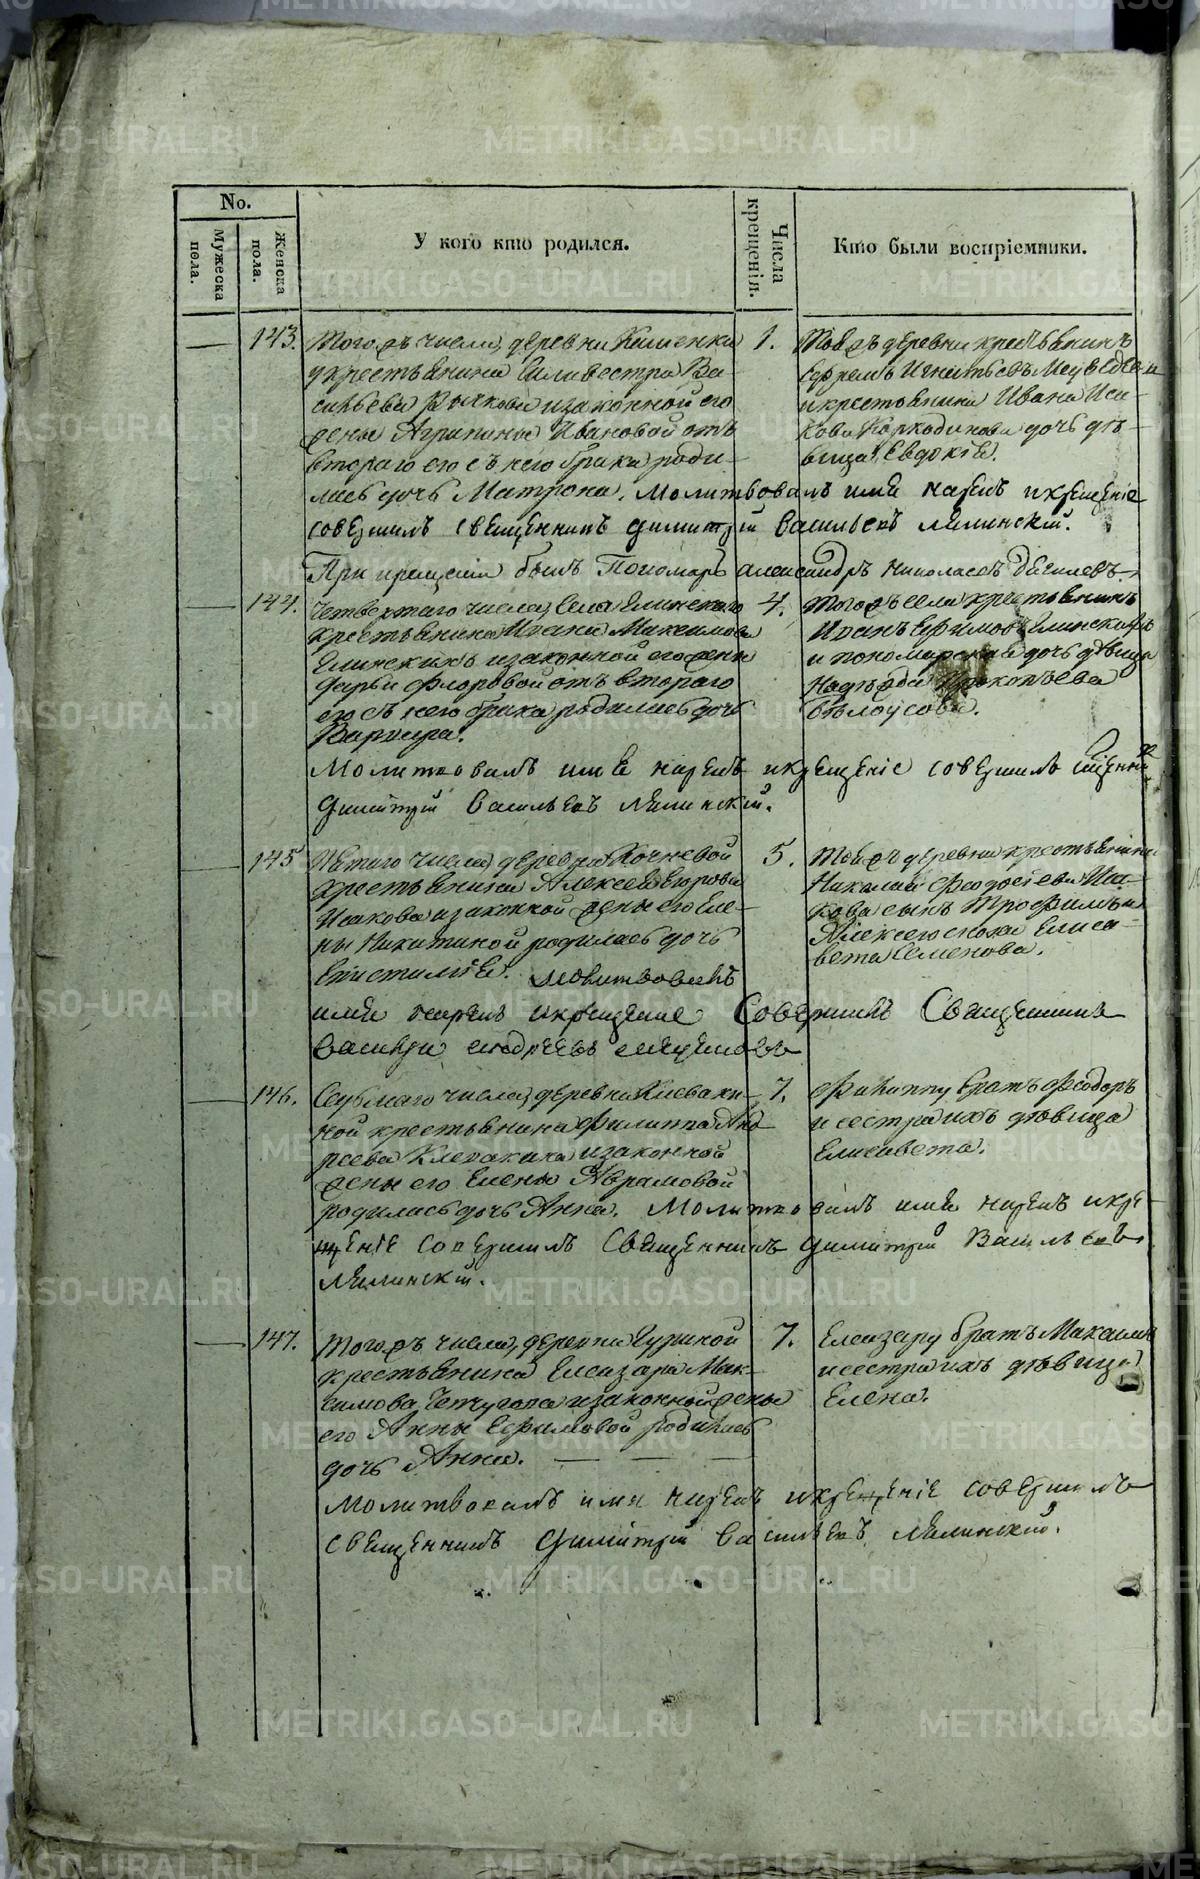 No.
Мужеска пола.
Женска пола.
У кого кто родился.
Числа крещенія.
Кто были воспріемники.
143.
Тогожъ числа, деревни Каменки
укрестьянина Силивестра Ва-
сильева изаконной его
жены Агрипины Ивановой отъ
втораго его съ нею брака роди-
лась дочь Матрона. Молитвовалъ имя нарекъ икрещеніе
совершилъ священникъ Димитрій Васильевъ Лялинскій.
При крещеніи былъ Пономарь Александръ Николаевъ
1.
Тойжъ деревни крестьянинъ
Ефремъ Игнатьевъ Медведевъ
икрестьянина Ивана Иса-
кова Коркодинова дочь дѣ-
вица Евдокія.
144.
Четвертаго числа, Села Елинскаго
крестьянина Ивана Максимова
Елинскихъ изаконной его жены
Дарьи Флоровой отъ втораго
его съ нею брака родилась дочь
Варвара.
Молитвовалъ имя нарекъ икрещеніе совершилъ священникъ
Димитрій Васильевъ Лялинскій.
4.
Тогожъ села крестьянинъ
Иванъ Ефимовъ Елинскихъ
и пономарская дочь дѣвица
Надѣжда Прокопьева
Бѣлоусова.
145
Пятаго числа, деревни Кочневой
крестьянина Алексея Егорова
Исакова изаконной жены его Еле-
ны Никитиной родилась дочь
Епистимія. Молитвовалъ
имя нарекъ икрещеніе Совершилъ Священникъ
Василій
5.
Тойжъ деревни крестьянина
Николая Феодосіева Иса-
кова сынъ Трофимъ и
Алексего сноха Елиса-
вета Семенова.
146.
Седьмаго числа, деревни Клеваки-
ной крестьянина Филиппа Анд-
реева Клевакина изаконной
жены его Елены Аврамовой
родилась дочь Анна. Молитвовалъ имя нарекъ икре-
щеніе совершилъ Священникъ Димитрій Васильевъ
Лялинскій.
7.
Филиппу братъ Феодоръ
и сестра ихъ дѣвица
Елисавета.
147.
Тогожъ числа, деревни
крестьянина Елеазара Мак-
симова изаконной жены
его Анны Ефимовой родилась
дочь Анна.
Молитвовалъ имя нарекъ икрещеніе совершилъ
священникъ Димитрій Васильевъ Лялинскій.
7.
Елеазару братъ Максимъ
исестра ихъ дѣвица
Елена.
METRIKI.GASO-URAL.RU